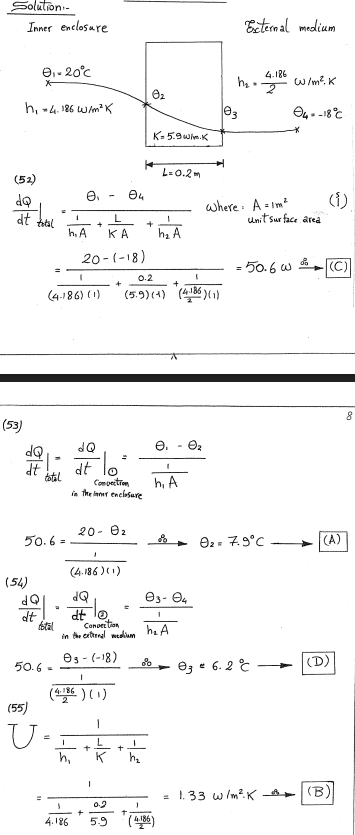 Solution:-
Inner enclosure
External medium
θ₁ = 20°C
θ₂
h₂ = 4.186/2 W/m².K
h₁ = 4.186 W/m²K
θ₃
θ₄ = -18°C
K = 5.9 W/m.K
L = 0.2m
(52)
dQ/dt|total = (θ₁ - θ₄) / (1/h₁A + L/KA + 1/h₂A) where: A = 1m² unit surface area
= (20 - (-18)) / (1/(4.186)(1) + 0.2/(5.9)(1) + 1/(4.186/2)(1)) = 50.6 W ∴→ (C)
8
(53)
dQ/dt|total = dQ/dt|① Convection in the inner enclosure = (θ₁ - θ₂) / (1/h₁A)
50.6 = (20 - θ₂) / (1/(4.186)(1)) ∴→ θ₂ = 7.9°C → (A)
(54)
dQ/dt|total = dQ/dt|② Convection in the external medium = (θ₃ - θ₄) / (1/h₂A)
50.6 = (θ₃ - (-18)) / (1/(4.186/2)(1)) ∴→ θ₃ = 6.2°C → (D)
(55)
U = 1 / (1/h₁ + L/K + 1/h₂)
= 1 / (1/4.186 + 0.2/5.9 + 1/(4.186/2)) = 1.33 W/m².K ∴→ (B)